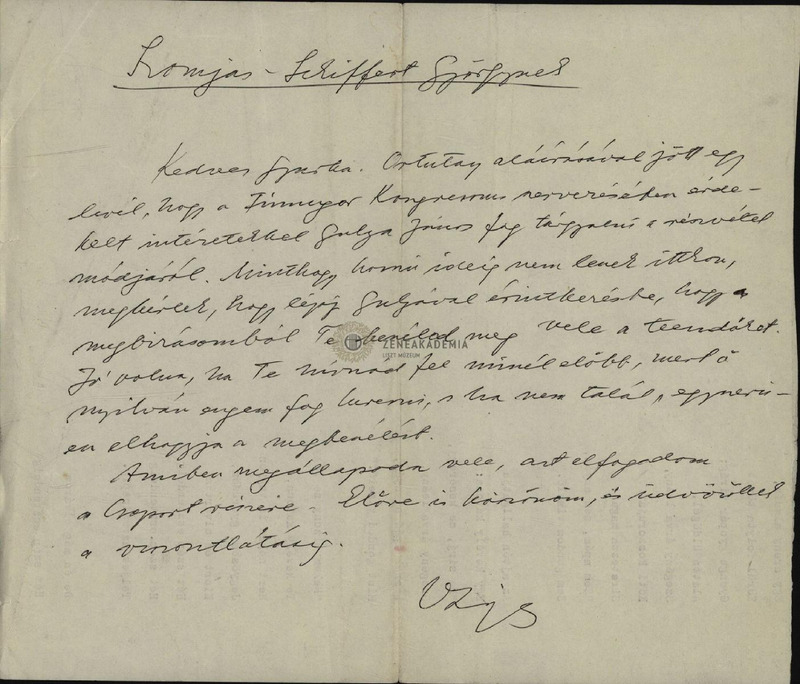 Szomjas-Schiffert Györgynek
Kedves Gyurka. Ortutay aláírásával jött egy
levél, hogy a Finnugor Kongresszus szervezésében érde-
kelt intézetekkel Gulya János fog tárgyalni a részvétel
módjáról. Minthogy hosszú ideig nem leszek itthon,
megkérlek, hogy lépj Gulyával érintkezésbe, hogy a
megbízásomból Te beszéled meg vele a teendőket.
Jó volna, ha Te hívnád fel minél előbb, mert ő
nyilván engem fog keresni, s ha nem talál, egyszerű-
en elhagyja a megbeszélést.
Amiben megállapodsz vele, azt elfogadom
a Csoport részére. Előre is köszönöm, és üdvözöllek
a viszontlátásig.
ZENEAKADÉMIA
LISZT MÚZEUM